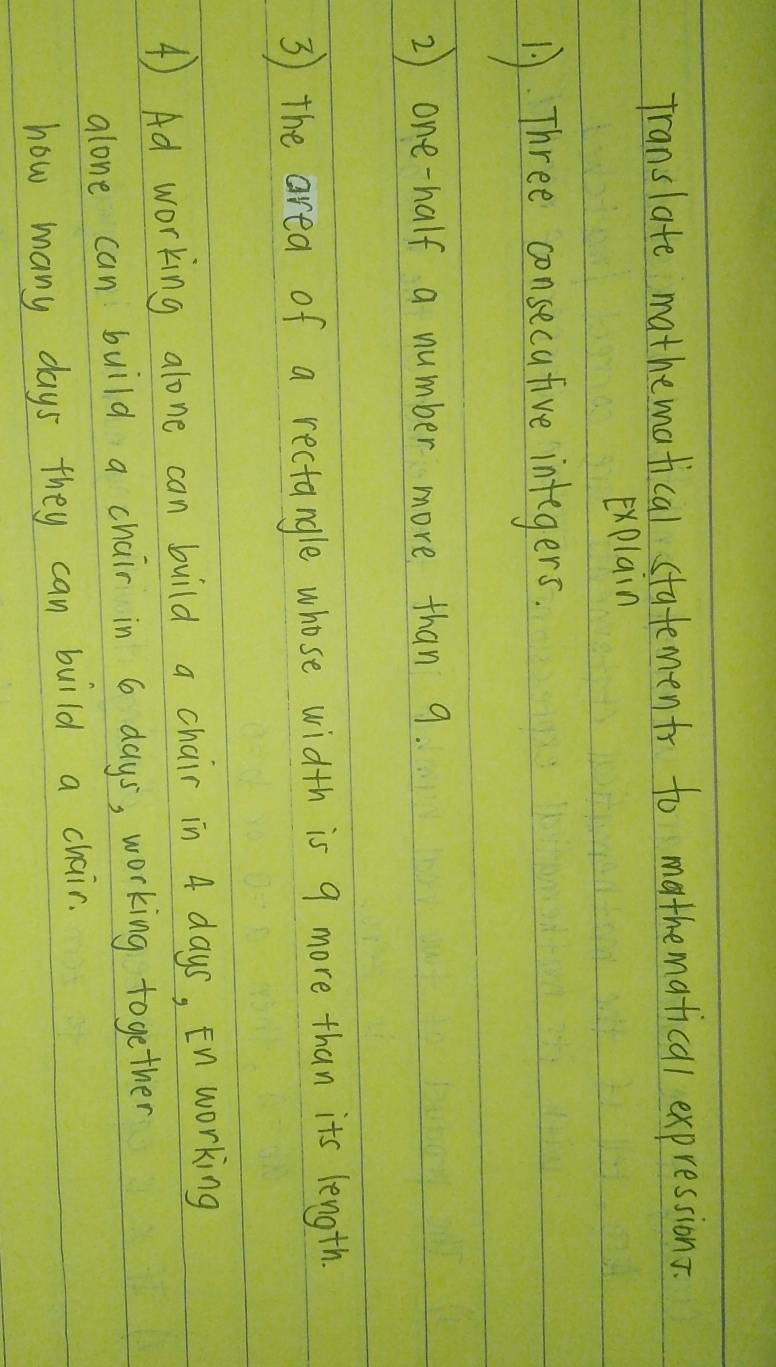 Translate mathematical statements to mathematical expressions.
Explain
1.) Three consecutive integers.
2) one-half a number more than 9.
3) the area of a rectangle whose width is 9 more than its length.
4) Ad working alone can build a chair in 4 days, En working
alone can build a chair in 6 days, working together
how many days they can build a chair.